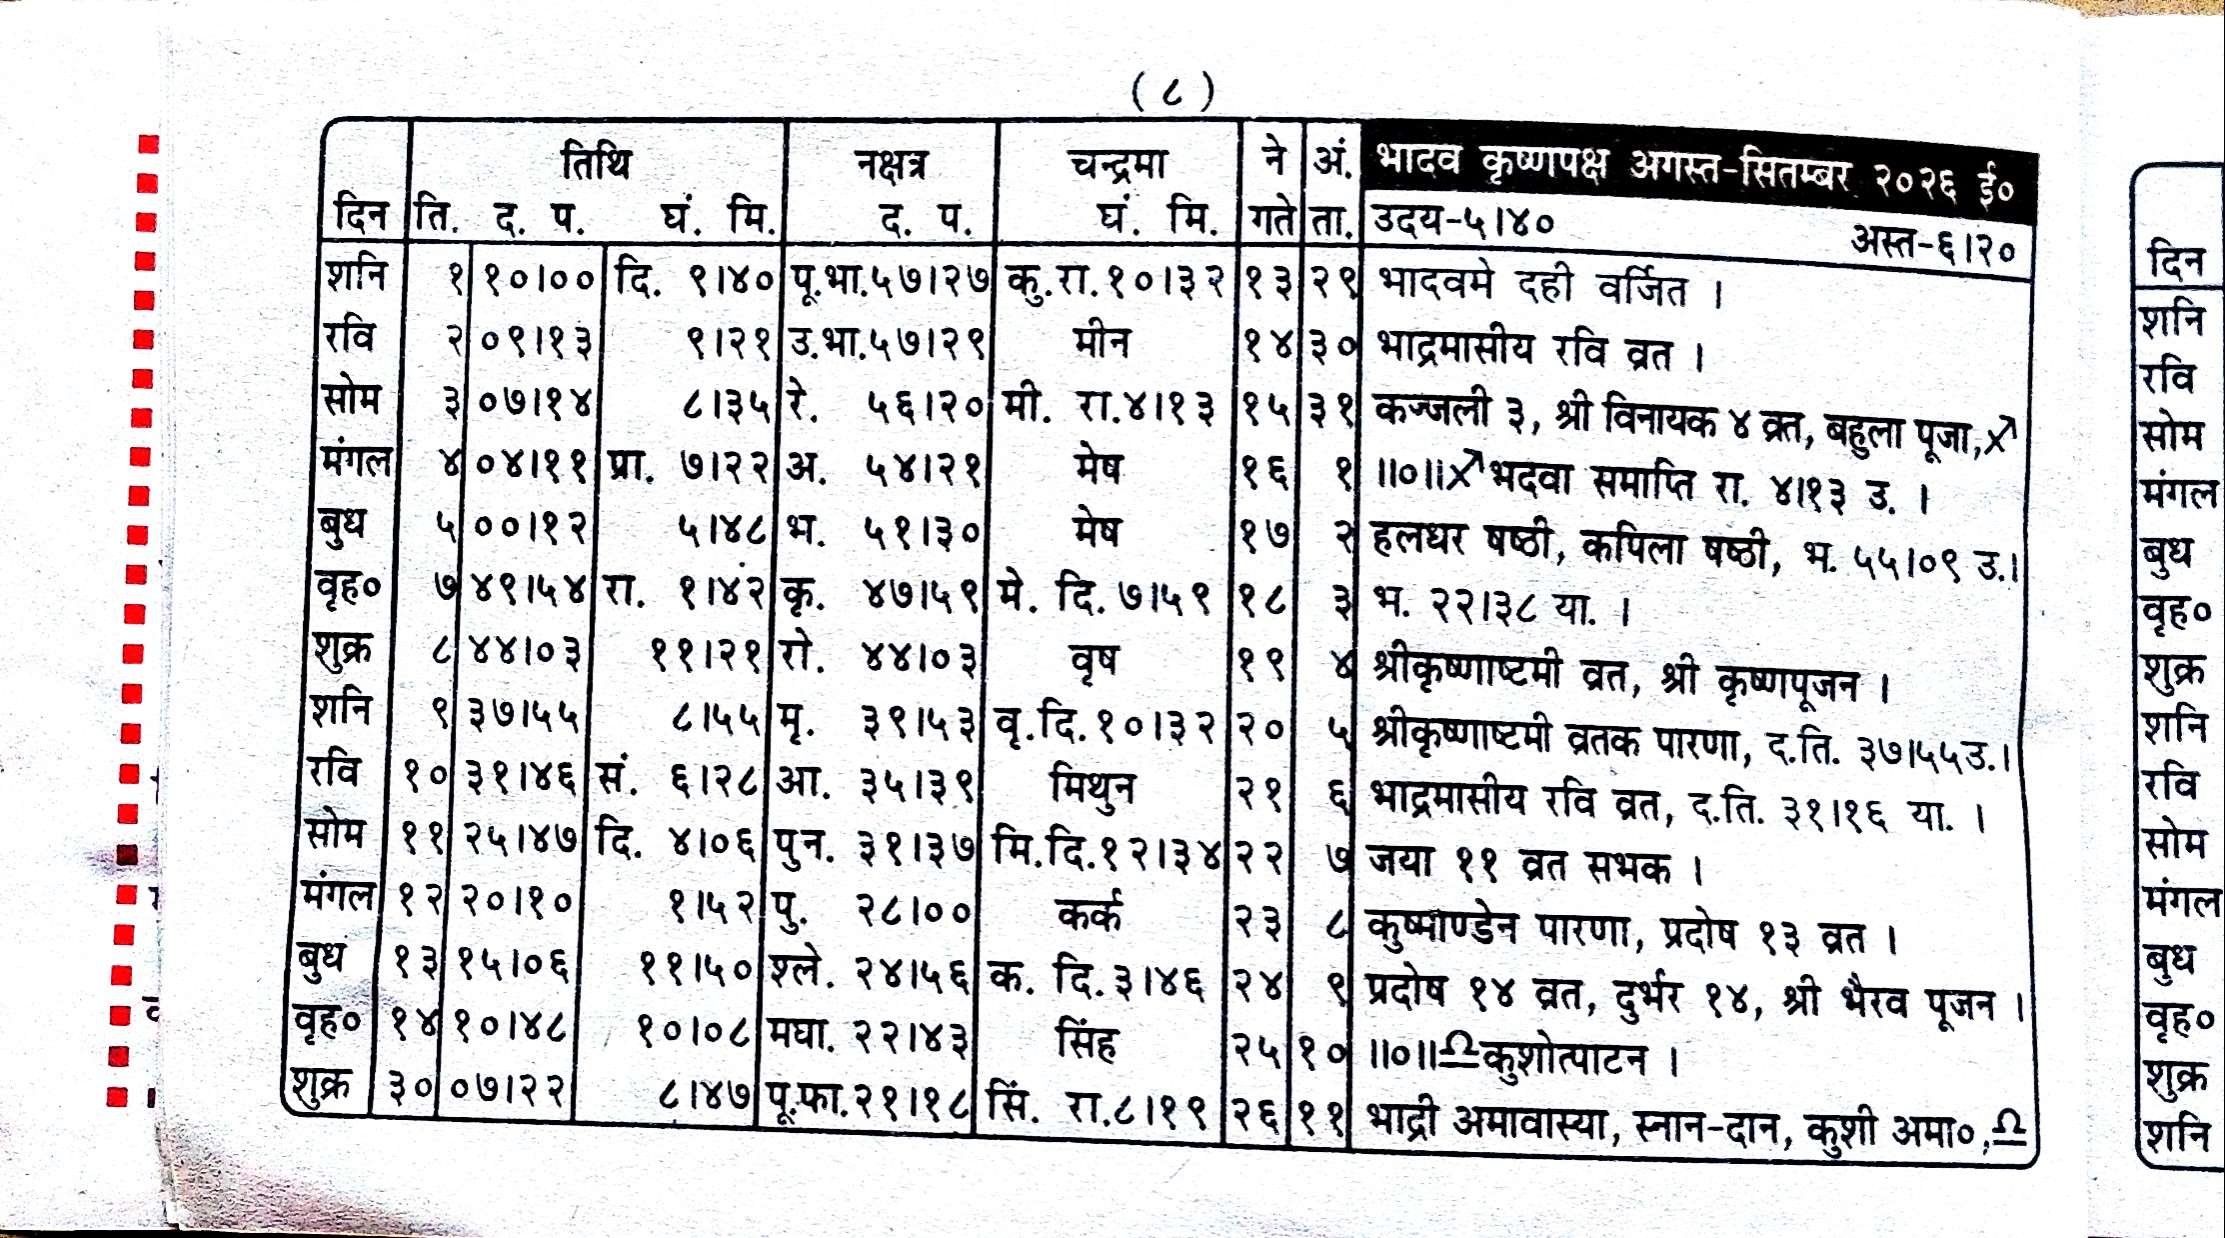 ( ८ )
तिथि नक्षत्र चन्द्रमा ने अं. भादव कृष्णपक्ष अगस्त-सितम्बर २०२६ ई०
दिन ति. द. प. घं. मि. द. प. घं. मि. गते ता. उदय-५।४० अस्त-६।२०
शनि १ १०।०० दि. ९।४० पू.भा.५७।२७ कु.रा.१०।३२ १३ २९ भादवमे दही वर्जित ।
रवि २ ०९।१३ ९।२१ उ.भा.५७।२९ मीन १४ ३० भाद्रमासीय रवि व्रत ।
सोम ३ ०७।१४ ८।३५ रे. ५६।२० मी. रा.४।१३ १५ ३१ कज्जली ३, श्री विनायक ४ व्रत, बहुला पूजा,
मंगल ४ ०४।११ प्रा. ७।२२ अ. ५४।२१ मेष १६ १ ॥०॥ भदवा समाप्ति रा. ४।१३ उ. ।
बुध ५ ००।१२ ५।४८ भ. ५१।३० मेष १७ २ हलधर षष्ठी, कपिला षष्ठी, भ. ५५।०९ उ.।
वृह० ७ ४९।५४ रा. १।४२ कृ. ४७।५९ मे. दि. ७।५९ १८ ३ भ. २२।३८ या. ।
शुक्र ८ ४४।०३ ११।२१ रो. ४४।०३ वृष १९ ४ श्रीकृष्णाष्टमी व्रत, श्री कृष्णपूजन ।
शनि ९ ३७।५५ ८।५५ मृ. ३९।५३ वृ.दि.१०।३२ २० ५ श्रीकृष्णाष्टमी व्रतक पारणा, द.ति. ३७।५५उ.।
रवि १० ३१।४६ सं. ६।२८ आ. ३५।३९ मिथुन २१ ६ भाद्रमासीय रवि व्रत, द.ति. ३१।१६ या. ।
सोम ११ २५।४७ दि. ४।०६ पुन. ३१।३७ मि.दि.१२।३४ २२ ७ जया ११ व्रत सभक ।
मंगल १२ २०।१० १।५२ पु. २८।०० कर्क २३ ८ कुष्माण्डेन पारणा, प्रदोष १३ व्रत ।
बुध १३ १५।०६ ११।५० श्ले. २४।५६ क. दि. ३।४६ २४ ९ प्रदोष १४ व्रत, दुर्भर १४, श्री भैरव पूजन ।
वृह० १४ १०।४८ १०।०८ मघा. २२।४३ सिंह २५ १० ॥०॥♎कुशोत्पाटन ।
शुक्र ३० ०७।२२ ८।४७ पू.फा.२१।१८ सिं. रा.८।१९ २६ ११ भाद्री अमावास्या, स्नान-दान, कुशी अमा०,♎
दिन
शनि
रवि
सोम
मंगल
बुध
वृह०
शुक्र
शनि
रवि
सोम
मंगल
बुध
वृह०
शुक्र
शनि